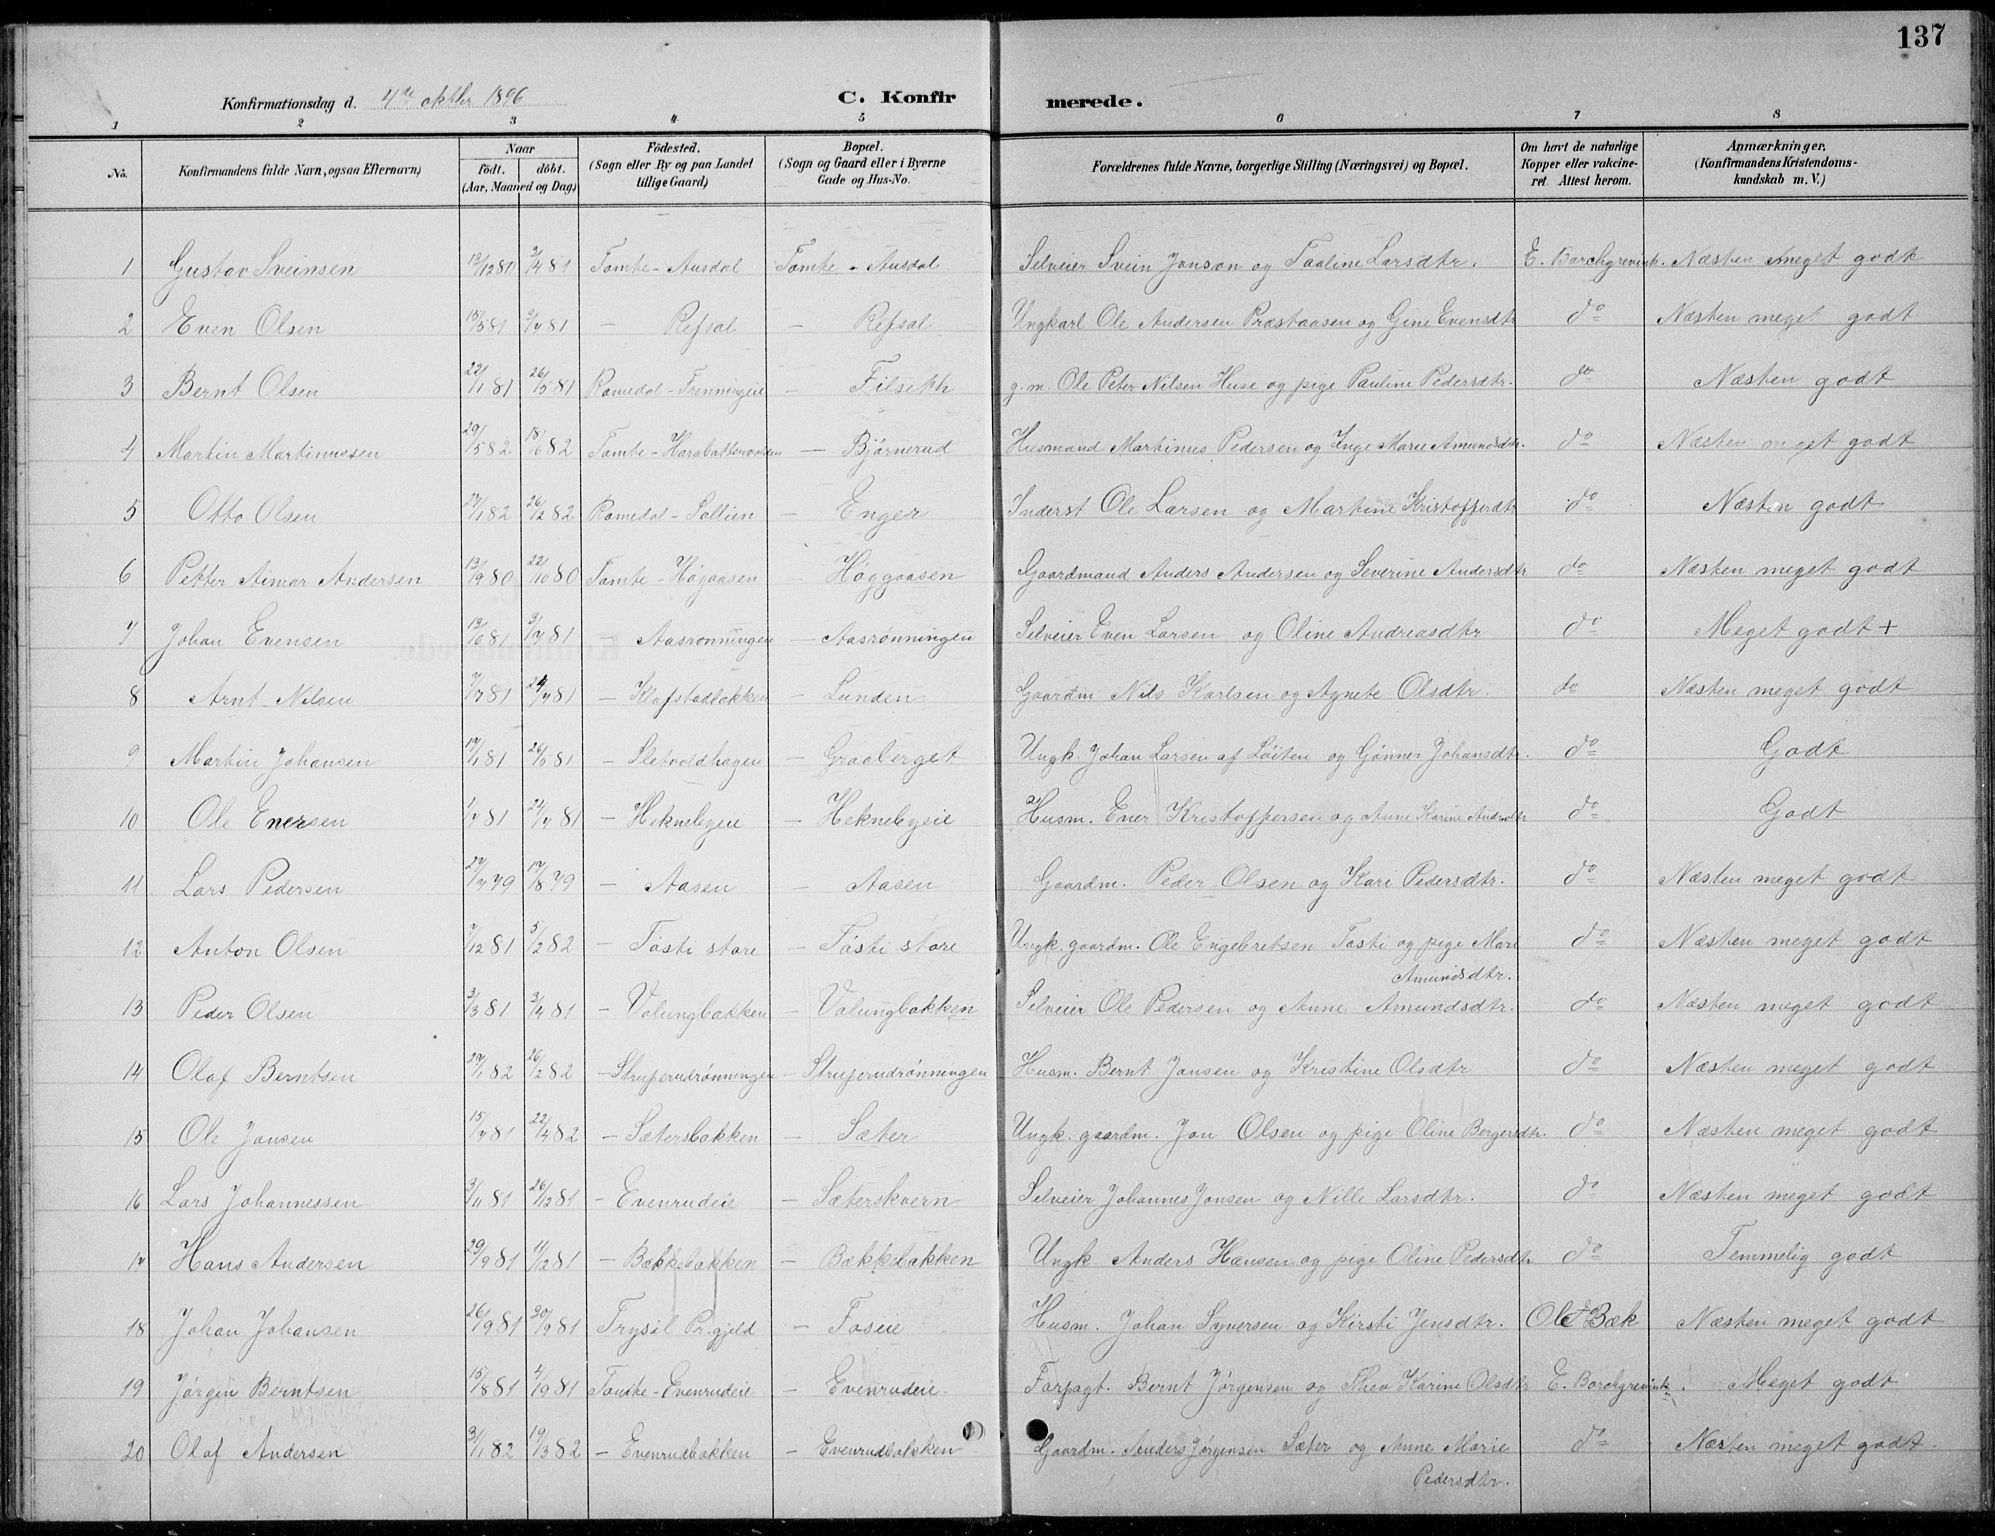 137
Konfirmationsdag d. 4de oktbr 1896 C. Konfir merede.
1 2 3 4 5 6 7 8
No. Konfirmandens fulde Navn, ogsaa Efternavn) Naar födt. döbt. (Aar, Maaned og Dag) Födested. (Sogn eller By og paa Landet tillige Gaard) Bopæl. (Sogn og Gaard eller i Byerne Gade og Hus-No. Forældrenes fulde Navne, borgerlige Stilling (Næringsvei) og Bopæl. Om havt de naturlige Kopper eller vakcineret. Attest herom. Anmærkninger, (Konfirmandens Kristendomskundskab m. V.)
1 Gustav Sveinsen 13/12 80 3/4 81 Tomte - Ausdal Tomte - Ausdal Selveier Svein Jonson og Taaline Larsdtr. E. Borchgrevink. Næsten meget godt
2 Even Olsen 15/5 81 3/7 81 — Refsal — Refsal Ungkarl Ole Andersen Præstaasen og Gine Evensdtr do Næsten meget godt
3 Bernt Olsen 22/1 81 26/5 81 Romedal - Frenningeie — Filseth g. m. Ole Peter Nilsen Huse og pige Pauline Pedersdtr. do Næsten godt
4 Martin Martinussen 29/5 82 18/6 82 Tomte - — Björnerud Husmand Martinus Pedersen og Inge Marie Amundsdtr. do Næsten meget godt
5 Otto Olsen 27/1 82 26/2 82 Romedal - Sollien — Enger Inderst Ole Larsen og Martine Kristoffersdtr do Næsten godt
6 Petter Aimar Andersen 13/9 80 22/10 80 Tomte - Högaasen Höggaasen Gaardmand Anders Andersen og Severine Andersdtr do Næsten meget godt
7 Johan Evensen 13/6 81 3/7 81 — Aasronningen — Aasrönningen Selveier Even Larsen og Oline Andreasdtr do Meget godt +
8 Arnt Nilsen 7/7 81 24/7 81 — Klafstadbakken — Lunden Gaardm Nils Karlsen og Agnete Olsdtr. do Næsten meget godt
9 Martin Johansen 17/1 81 26/5 81 — Sletvoldhagen — Graaberget Ungk. Johan Larsen af Löiten og Gönner Johansdtr. do Godt
10 Ole Enersen 1/7 81 24/7 81 — Heknebyeie — Heknebyeie Husm. Ener Kristoffersen og Anne Karine Andersdtr do Godt
11 Lars Pedersen 27/7 79 17/8 79 — Aasen — Aasen Gaardm. Peder Olsen og Kari Pedersdtr. do Næsten meget godt
12 Anton Olsen 7/12 81 5/2 82 — Tösti store — Tösti store Ungk. gaardm. Ole Engebretsen Tosti og pige Mari do Næsten meget godt
Amundsdtr.
13 Peder Olsen 3/3 81 3/4 81 — Valungbakken — Valungbakken Selveier Ole Pedersen og Anne Amundsdtr. do Næsten meget godt
14 Olaf Berntsen 27/1 82 26/2 82 — Struperudrönningen — Struperudrönningen Husm. Bernt Jansen og Kristine Olsdtr do Næsten meget godt
15 Ole Jansen 15/7 81 22/4 82 — Sætersbakken — Sæter Ungk. gaardm. Jon Olsen og pige Oline Bergersdtr. do Næsten meget godt
16 Lars Johannessen 3/11 81 26/12 81 — Evenrudeie — Sæterskvern Selveier Johannes Jonsen og Nille Larsdtr. do Næsten meget godt
17 Hans Andersen 29/9 81 11/12 81 — Bækkebakken — Bækkebakken Ungk. Anders Hansen og pige Oline Pedersdtr do Temmelig godt
18 Johan Johansen 26/9 81 30/9 81 Trysil Pr.gjeld — Foseie Husm. Johan Syversen og Kirsti Jensdtr. Ole Bæk Næsten meget godt
19 Jörgen Berntsen 15/8 81 4/9 81 Tomte - Evenrudeie — Evenrudeie Forpagt. Bernt Jörgensen og Thea Karine Olsdtr E. Borchgrevink. Meget godt
20 Olaf Andersen 3/1 82 19/3 82 — Evenrudbakken — Evenrudbakken Gaardm. Anders Jörgensen Sæter og Anne Marie do Næsten meget godt.
Pedersdtr.